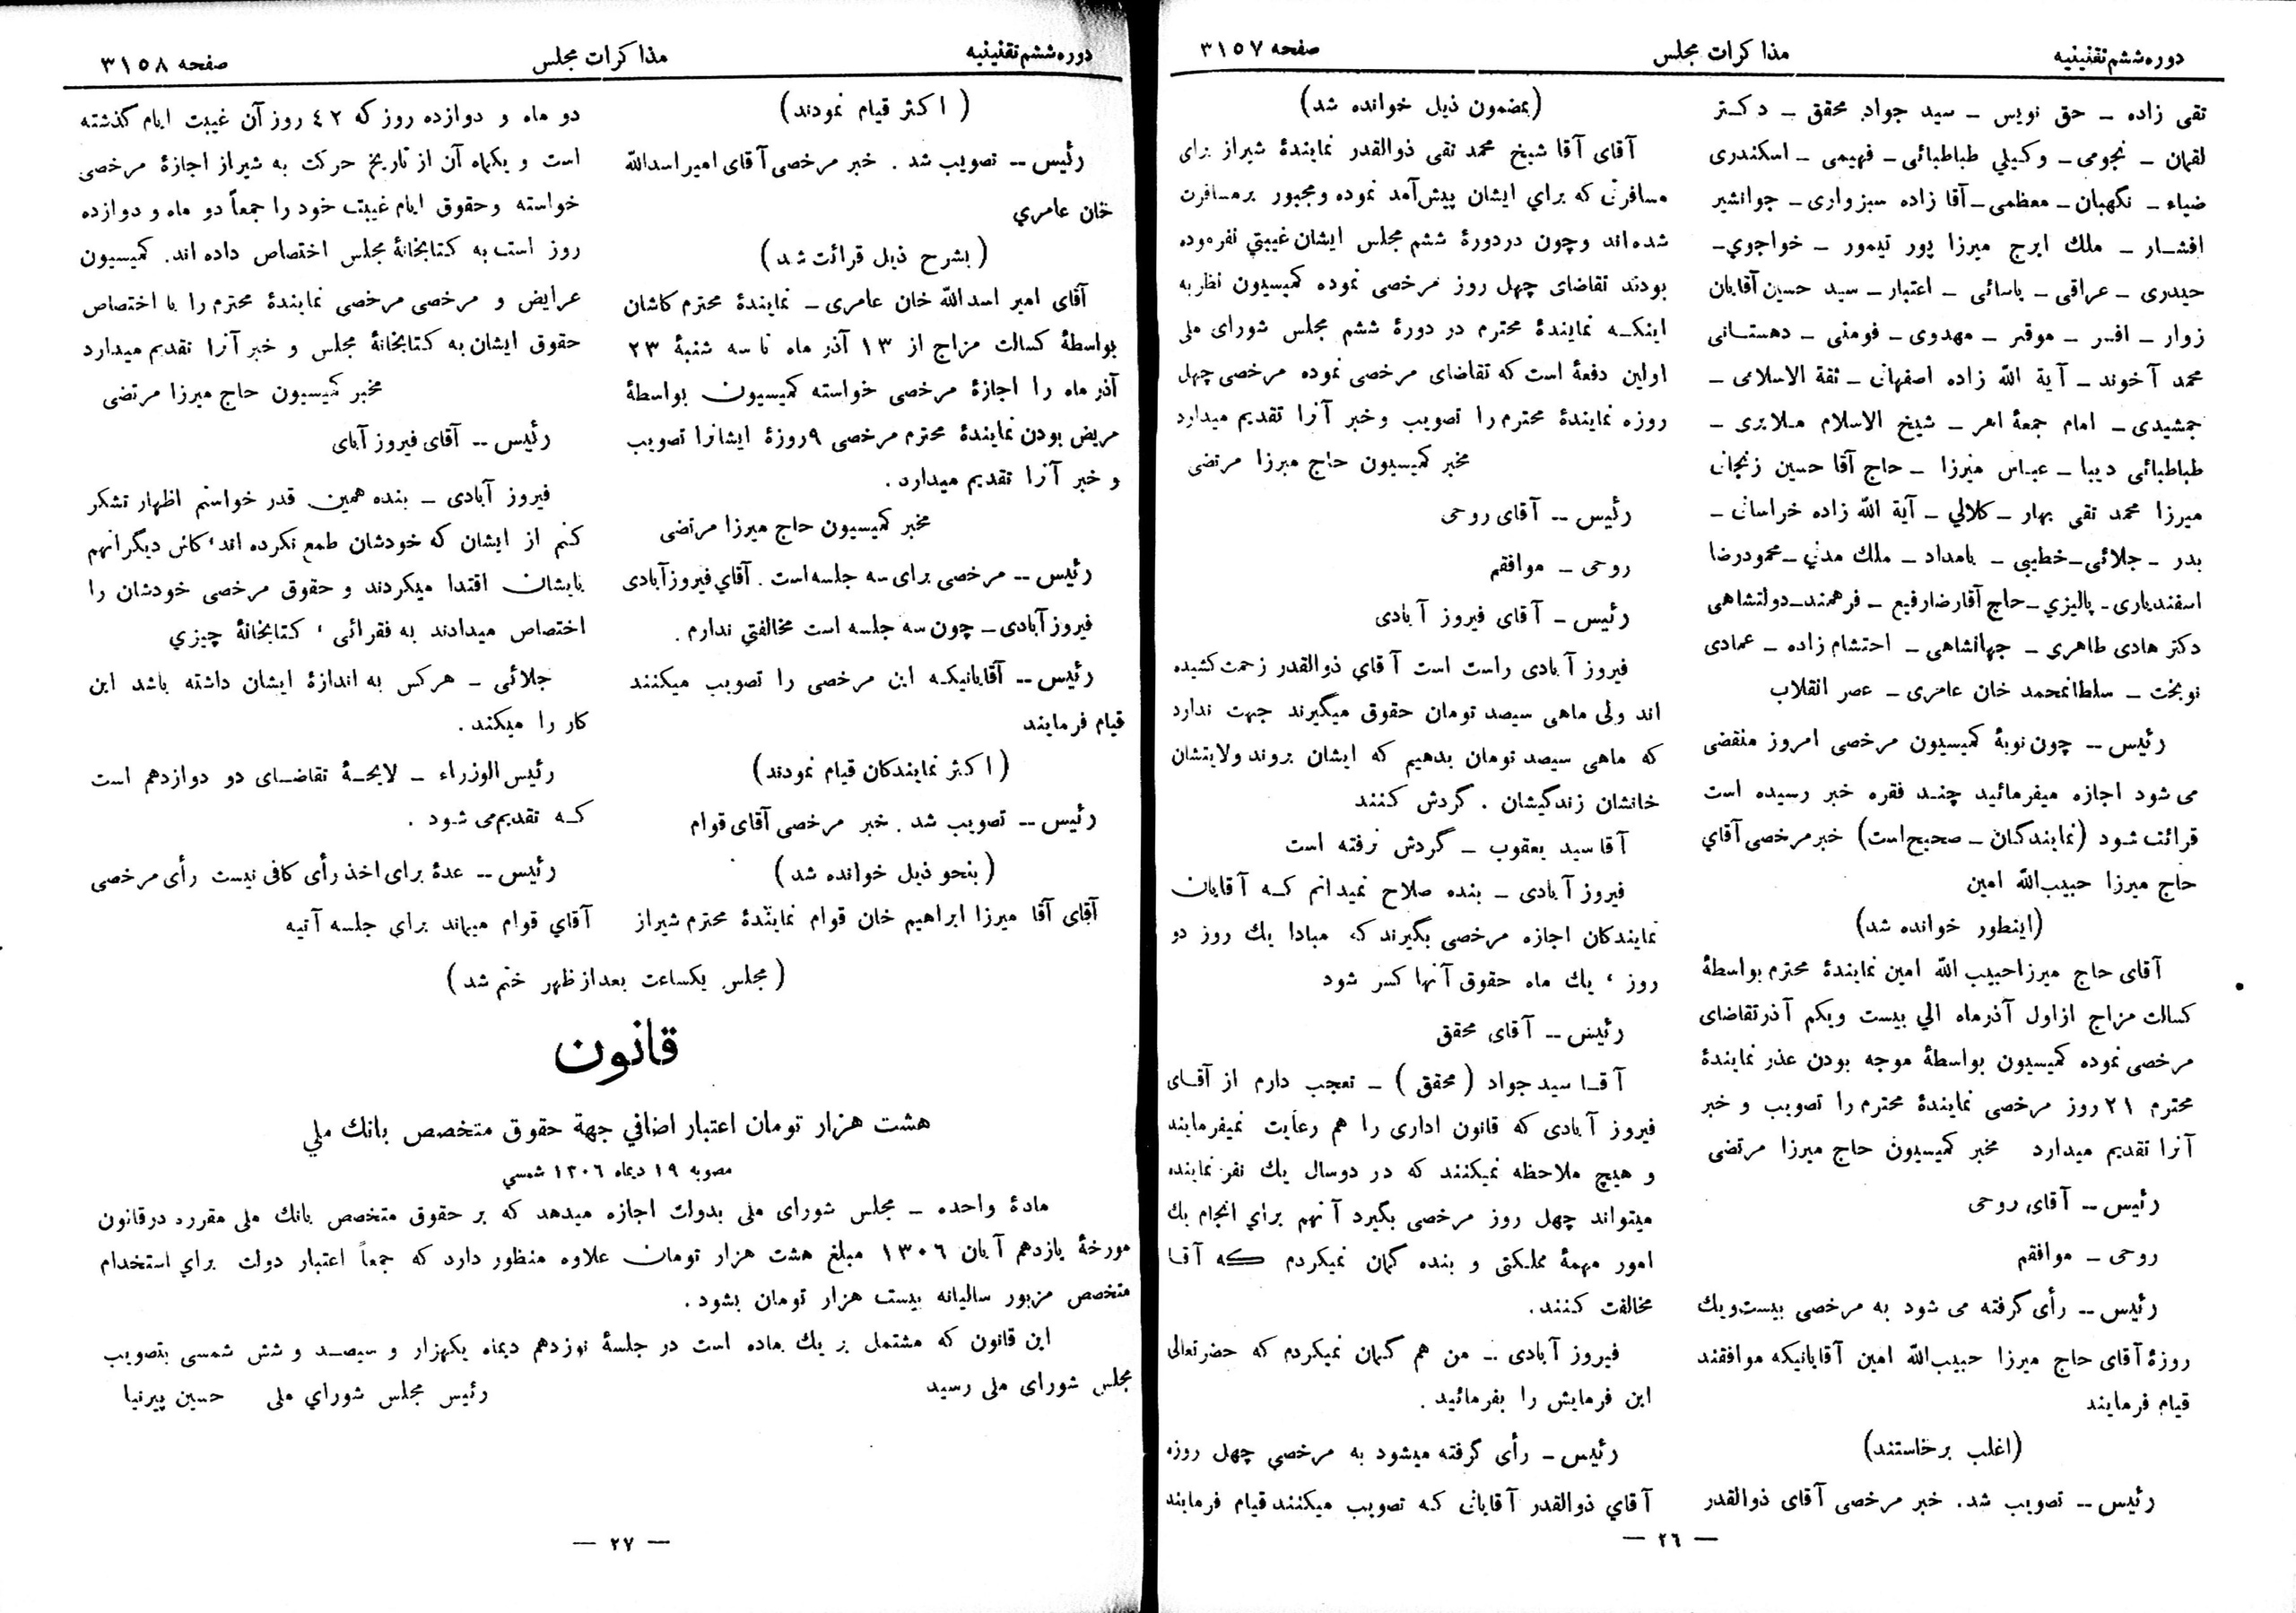 دوره ششم تقنینیه
مذاکرات مجلس
صفحه ۳۱۵۷
تقی زاده – حق نویس – سید جواد محقق – دکتر
لقمان – نجومی – وکیلي طباطبائی – فهیمی – اسکندری
ضیاء – نگهبان – معظمی – آقا زاده سبزواری – جوانشیر
افشار – ملك ایرج میرزا پور تیمور – خواجوي–
حیدری – عراقی – یاسائی – اعتبار – سید حسین آقایان
زوار – افسر – موقر – مهدوی – فومنی – دهستانی
محمد آخوند – آیة الله زاده اصفهانی – ثقة الاسلامی –
جمشیدی – امام جمعهٔ اهر – شیخ الاسلام ملایری –
طباطبائی دیبا – عباس میرزا – حاج آقا حسین زنجانی
میرزا محمد تقی بهار – کلالي – آیة الله زاده خراسانی –
بدر – جلائی – خطیبی – بامداد – ملك مدنی – محمودرضا
اسفندیاری – پالیزي – حاج آقا رضا رفیع – فرهمند – دولتشاهی
دکتر هادی طاهری – جهانشاهی – احتشام زاده – عمادی
نوبخت – سلطانمحمد خان عامری – عصر انقلاب
رئیس -- چون نوبهٔ کمیسیون مرخصی امروز منقضی
می شود اجازه میفرمائید چند فقره خبر رسیده است
قرائت شود (نمایندگان – صحیح است) خبر مرخصی آقاي
حاج میرزا حبیب‌الله امین
(اینطور خوانده شد)
آقای حاج میرزا حبیب الله امین نمایندهٔ محترم بواسطهٔ
کسالت مزاج از اول آذر ماه الي بیست و یکم آذر تقاضای
مرخصی نموده کمیسیون بواسطهٔ موجه بودن عذر نمایندهٔ
محترم ۲۱ روز مرخصی نمایندهٔ محترم را تصویب و خبر
آنرا تقدیم میدارد مخبر کمیسیون حاج میرزا مرتضی
رئیس -- آقای روحی
روحی – موافقم
رئیس -- رأی گرفته می شود به مرخصی بیست و یك
روزهٔ آقای حاج میرزا حبیب‌الله امین آقایانیکه موافقند
قیام فرمایند
(اغلب برخاستند)
رئیس -- تصویب شد. خبر مرخصی آقای ذوالقدر
(بمضمون ذیل خوانده شد)
آقای آقا شیخ محمد تقی ذوالقدر نمایندهٔ شیراز برای
مسافرتی که براي ایشان پیش‌آمد نموده و مجبور بر مسافرت
شده‌اند و چون در دورهٔ ششم مجلس ایشان غیبتي نفرموده
بودند تقاضای چهل روز مرخصی نموده کمیسیون نظر به
اینکه نمایندهٔ محترم در دورهٔ ششم مجلس شورای ملی
اولین دفعهٔ است که تقاضای مرخصی نموده مرخصی چهل
روزه نمایندهٔ محترم را تصویب و خبر آنرا تقدیم میدارد
مخبر کمیسیون حاج میرزا مرتضی
رئیس -- آقای روحی
روحی – موافقم
رئیس – آقای فیروز آبادی
فیروز آبادی راست است آقاي ذوالقدر زحمت کشیده
اند ولی ماهی سیصد تومان حقوق میگیرند جهت ندارد
که ماهی سیصد تومان بدهیم که ایشان بروند ولایتشان
خانشان زندگیشان . گردش کنند
آقا سید یعقوب – گردش نرفته است
فیروز آبادی – بنده صلاح نمیدانم که آقایان
نمایندگان اجازه مرخصی بگیرند که مبادا یك روز دو
روز ، یك ماه حقوق آنها کسر شود
رئیس -- آقای محقق
آقا سید جواد (محقق) – تعجب دارم از آقای
فیروز آبادی که قانون اداری را هم رعایت نمیفرمایند
و هیچ ملاحظه نمیکنند که در دوسال یك نفر نماینده
میتواند چهل روز مرخصی بگیرد آنهم براي انجام یك
امور مهمهٔ مملکتی و بنده گمان نمیکردم که آقا
مخالفت کنند.
فیروز آبادی – من هم گمان نمیکردم که حضرتعالی
این فرمایش را بفرمائید .
رئیس – رأی گرفته میشود به مرخصي چهل روزه
آقاي ذوالقدر آقایانی که تصویب میکنند قیام فرمایند
— ۲۶ —
دوره ششم تقنینیه
مذاکرات مجلس
صفحه ۳۱۵۸
(اکثر قیام نمودند)
رئیس -- تصویب شد . خبر مرخصی آقای امیر اسدالله
خان عامري
(بشرح ذیل قرائت شد)
آقای امیر اسدالله خان عامری – نمایندهٔ محترم کاشان
بواسطهٔ کسالت مزاج از ۱۳ آذر ماه تا سه شنبهٔ ۲۳
آذر ماه را اجازهٔ مرخصی خواسته کمیسیون بواسطهٔ
مریض بودن نمایندهٔ محترم مرخصی ۹ روزهٔ ایشانرا تصویب
و خبر آنرا تقدیم میدارد.
مخبر کمیسیون حاج میرزا مرتضی
رئیس -- مرخصی برای سه جلسه است . آقاي فیروز آبادی
فیروز آبادی – چون سه جلسه است مخالفتي ندارم.
رئیس -- آقایانیکه این مرخصی را تصویب میکنند
قیام فرمایند
(اکثر نمایندکان قیام نمودند)
رئیس -- تصویب شد . خبر مرخصی آقای قوام
(بنحو ذیل خوانده شد)
آقای آقا میرزا ابراهیم خان قوام نمایندهٔ محترم شیراز
دو ماه و دوازده روز که ۴۲ روز آن غیبت ایام گذشته
است و یکماه آن از تاریخ حرکت به شیراز اجازهٔ مرخصی
خواسته و حقوق ایام غیبت خود را جمعاً دو ماه و دوازده
روز است به کتابخانهٔ مجلس اختصاص داده اند. کمیسیون
عرایض و مرخصی مرخصی نمایندهٔ محترم را با اختصاص
حقوق ایشان به کتابخانهٔ مجلس و خبر آنرا تقدیم میدارد
مخبر کمیسیون حاج میرزا مرتضی
رئیس -- آقای فیروز آبای
فیروز آبادی – بنده همین قدر خواستم اظهار تشکر
کنم از ایشان که خودشان طمع نکرده اند ، کاش دیگرانهم
بایشان اقتدا میکردند و حقوق مرخصی خودشان را
اختصاص میدادند به فقرائی ، کتابخانهٔ چیزي
جلائی – هرکس به اندازهٔ ایشان داشته باشد این
کار را میکند .
رئیس الوزراء – لایحهٔ تقاضای دو دوازدهم است
که تقدیم می شود .
رئیس -- عدهٔ برای اخذ رأی کافی نیست رأی مرخصی
آقاي قوام میماند براي جلسه آتیه
(مجلس یکساعت بعد از ظهر ختم شد)
قانون
هشت هزار تومان اعتبار اضافي جهة حقوق متخصص بانك ملي
مصوبه ۱۹ دیماه ۱۳۰۶ شمسي
مادهٔ واحده – مجلس شورای ملی بدولت اجازه میدهد که بر حقوق متخصص بانك ملی مقرره در قانون
مورخهٔ یازدهم آبان ۱۳۰۶ مبلغ هشت هزار تومان علاوه منظور دارد که جمعاً اعتبار دولت براي استخدام
متخصص مزبور سالیانه بیست هزار تومان بشود.
این قانون که مشتمل بر یك ماده است در جلسهٔ نوزدهم دیماه یکهزار و سیصد و شش شمسی بتصویب
مجلس شورای ملی رسید
رئیس مجلس شوراي ملی حسین پیرنیا
— ۲۷ —